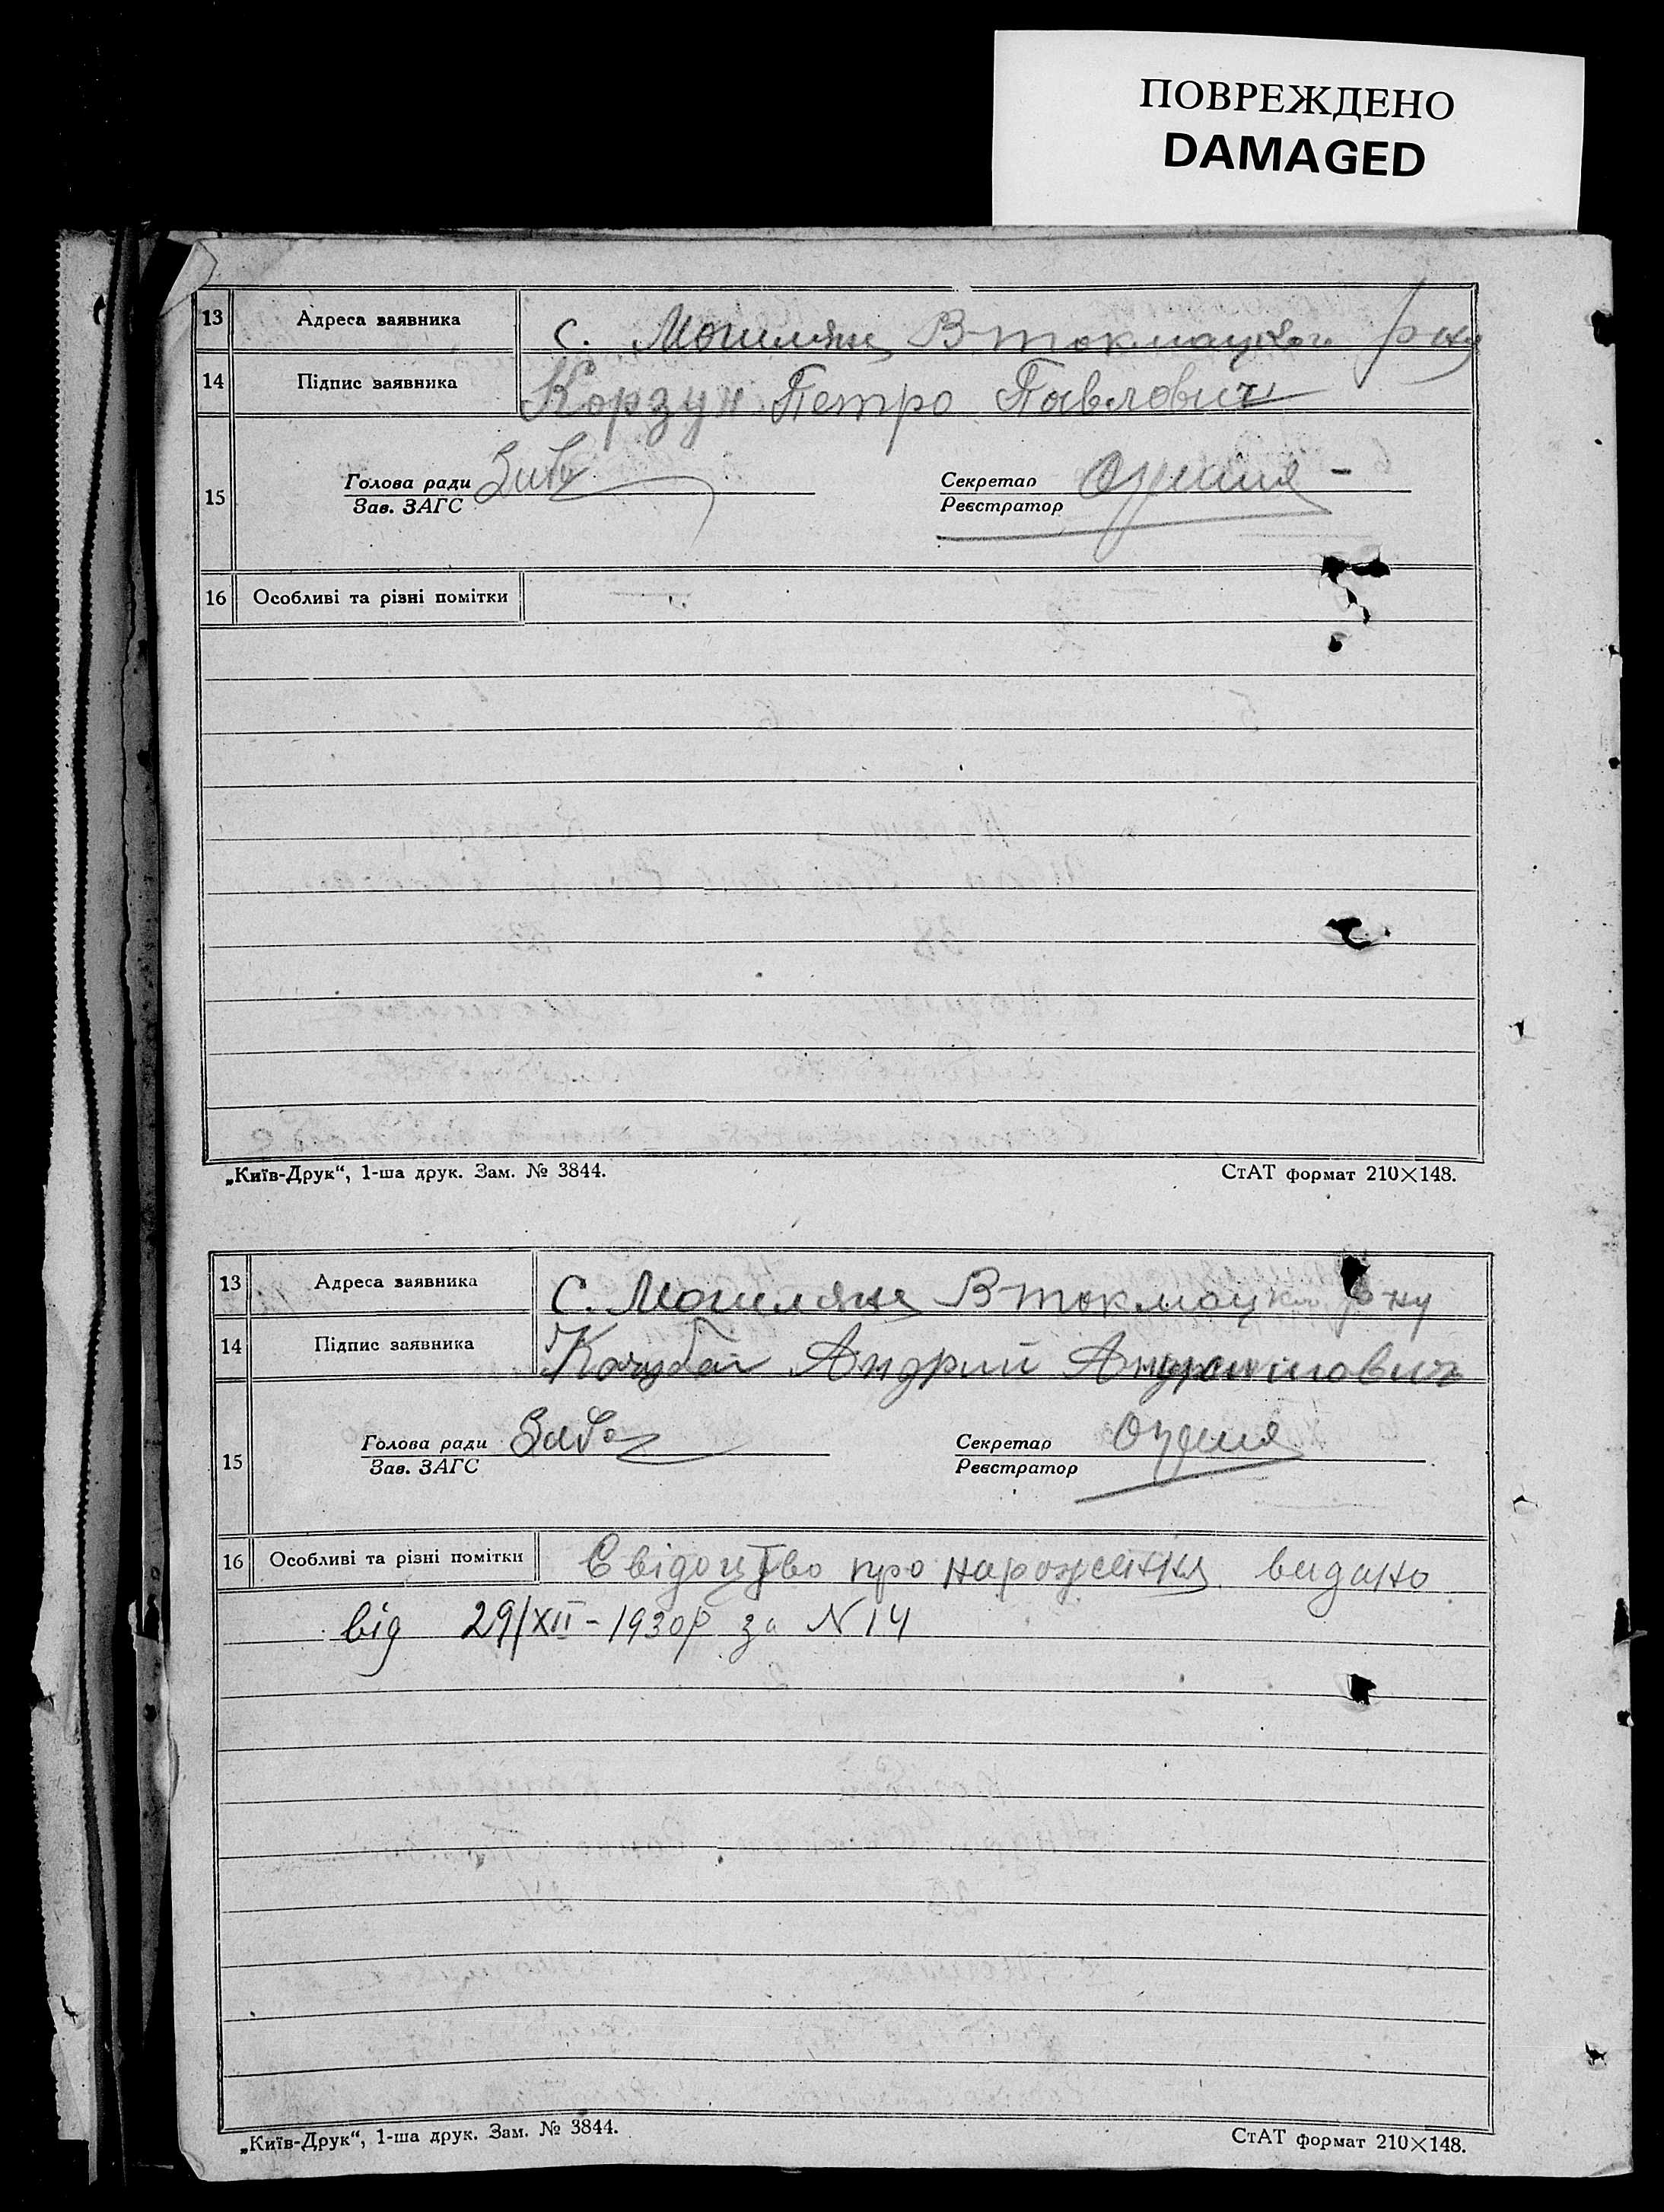 ПОВРЕЖДЕНО
DAMAGED
13 Адреса заявника с. Могиляни В-токмацького р-ну
14 Підпис заявника Корзун Петро Павлович
15 Голова ради Секретар
Зав. ЗАГС Реєстратор
16 Особливі та різні помітки
„Київ-Друк“, 1-ша друк. Зам. № 3844. СтАТ формат 210×148.
13 Адреса заявника С. Могиляни В-токмацьк р-ну
14 Підпис заявника Качубай Андрий
15 Голова ради Секретар
Зав. ЗАГС Реєстратор
16 Особливі та різні помітки Свідоцтво про народження видано
від 29/XII-1930р за N 14
„Київ-Друк“, 1-ша друк. Зам. № 3844. СтАТ формат 210×148.